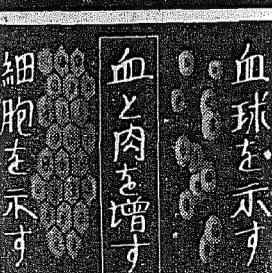 血球を示す
血と肉を増す
細胞を示す